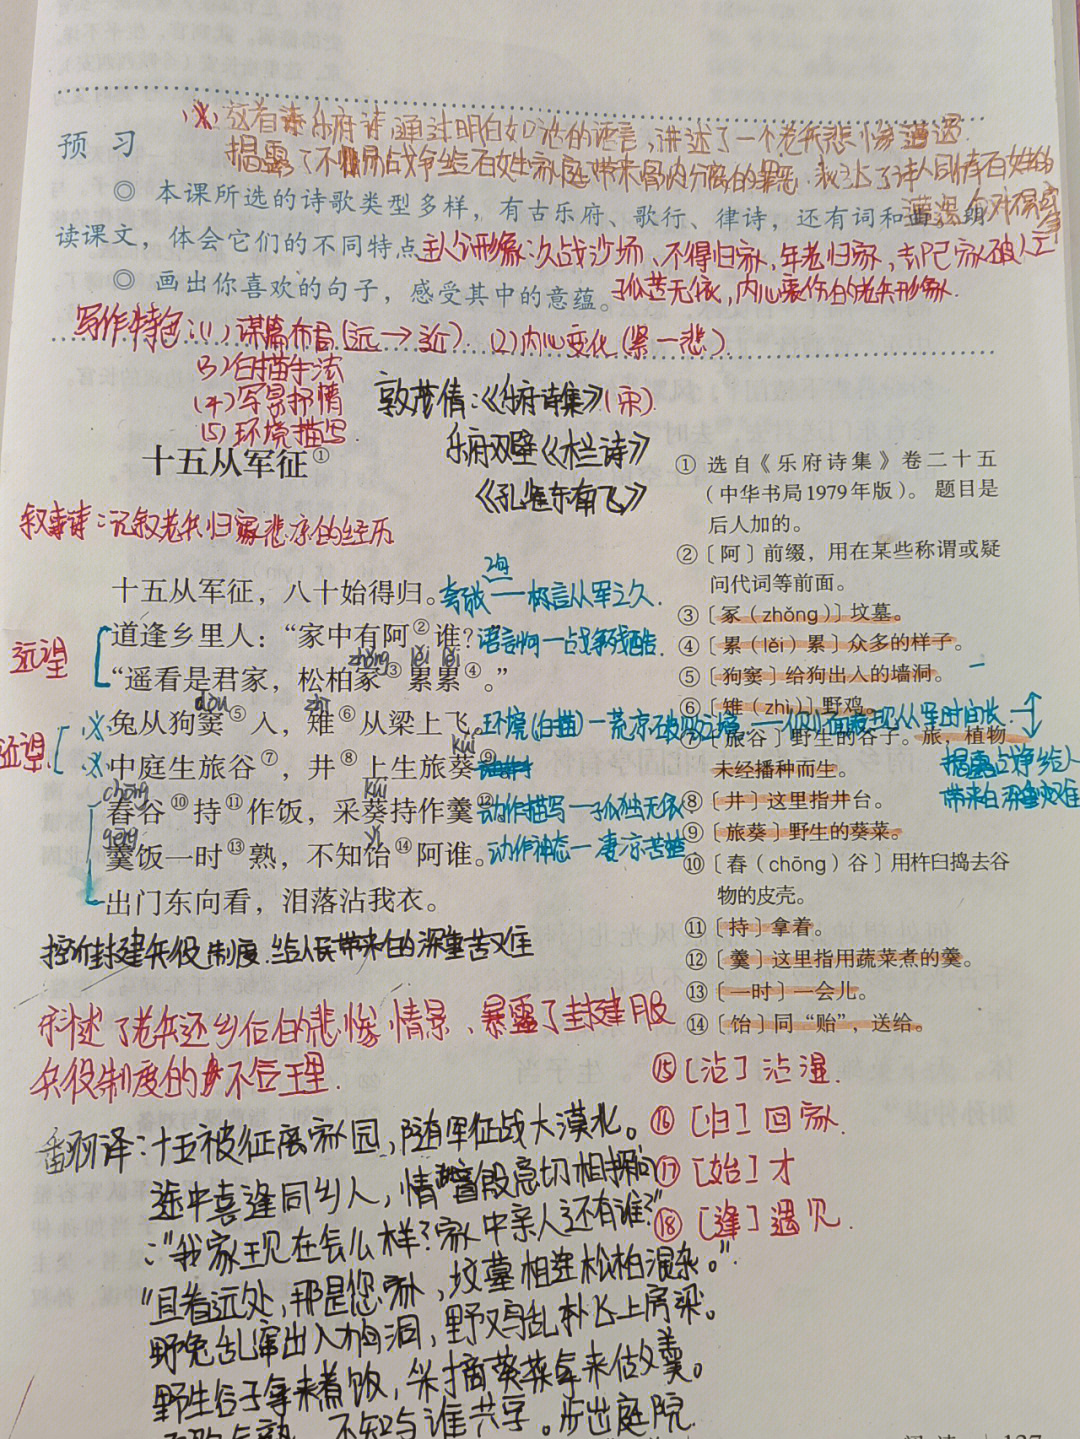 这首诗乐府诗通过明白如话的语言,讲述了一个老兵悲惨遭遇.
预 习
揭露了不懈战争给百姓家庭带来骨肉分离的罪恶.表达了诗人同情百姓的
遭遇
◎ 本课所选的诗歌类型多样,有古乐府、歌行、律诗,还有词和曲。朗
读课文,体会它们的不同特点
主人公形象:久战沙场、不得归家,年老归家,却已家破人亡
◎ 画出你喜欢的句子,感受其中的意蕴。
孤苦无依,内心哀伤的老兵形象.
写作特色:(1)谋篇布局(远→近).(2)内心变化(景—悲)
(3)白描手法
(4)写景抒情
(5)环境描写.
郭茂倩:《乐府诗集》(宋).
乐府双壁《木兰诗》
《孔雀东南飞》
十五从军征①
叙事诗:记叙老兵归家悲凉的经历
十五从军征,八十始得归。
夸张——极言从军之久.
远望
道逢乡里人:“家中有阿②谁?
语言描写—战争残酷.
zhǒng lěi lěi
“遥看是君家,松柏冢③累累④。”
dòu zhì
近望
兔从狗窦⑤入,雉⑥从梁上飞。
环境(白描)—荒凉破败之境——侧面表现从军时间长.
kuí
中庭生旅谷⑦,井⑧上生旅葵⑨
chōng kuí
舂谷⑩持⑪作饭,采葵持作羹⑫
动作描写—孤独无依
gēng yí
羹饭一时⑬熟,不知饴⑭阿谁。
动作神态—凄凉苦楚
出门东向看,泪落沾我衣。
揭露战争给人
带来的深重灾难
控诉封建兵役制度.给人民带来的深重苦难
描述了老兵还乡后的悲惨情景、暴露了封建
兵役制度的不合理.
翻译:十五被征离家园,随军征战大漠北。
途中喜逢同乡人,情冒般急切相探问
:“我家现在怎么样?家中亲人还有谁?”
“且看远处,那是您家,坟墓相连松柏混杂。”
野兔乱窜出入洞,野鸡乱扑飞上房梁。
野生谷子拿来煮饭,采摘葵菜拿来做羹。
不知与谁共享。步出庭院
① 选自《乐府诗集》卷二十五
(中华书局1979年版)。题目是
后人加的。
②〔阿〕前缀,用在某些称谓或疑
问代词等前面。
③〔冢(zhǒng)〕坟墓。
④〔累(lěi)累〕众多的样子。
⑤〔狗窦〕给狗出入的墙洞。
⑥〔雉(zhì)〕野鸡。
⑦〔旅谷〕野生的谷子。旅,植物
未经播种而生。
⑧〔井〕这里指井台。
⑨〔旅葵〕野生的葵菜。
⑩〔舂(chōng)谷〕用杵臼捣去谷
物的皮壳。
⑪〔持〕拿着。
⑫〔羹〕这里指用蔬菜煮的羹。
⑬〔一时〕一会儿。
⑭〔饴〕同“贻”,送给。
⑮[沾]沾湿.
⑯[归]回家.
⑰[始]才
⑱[逢]遇见.